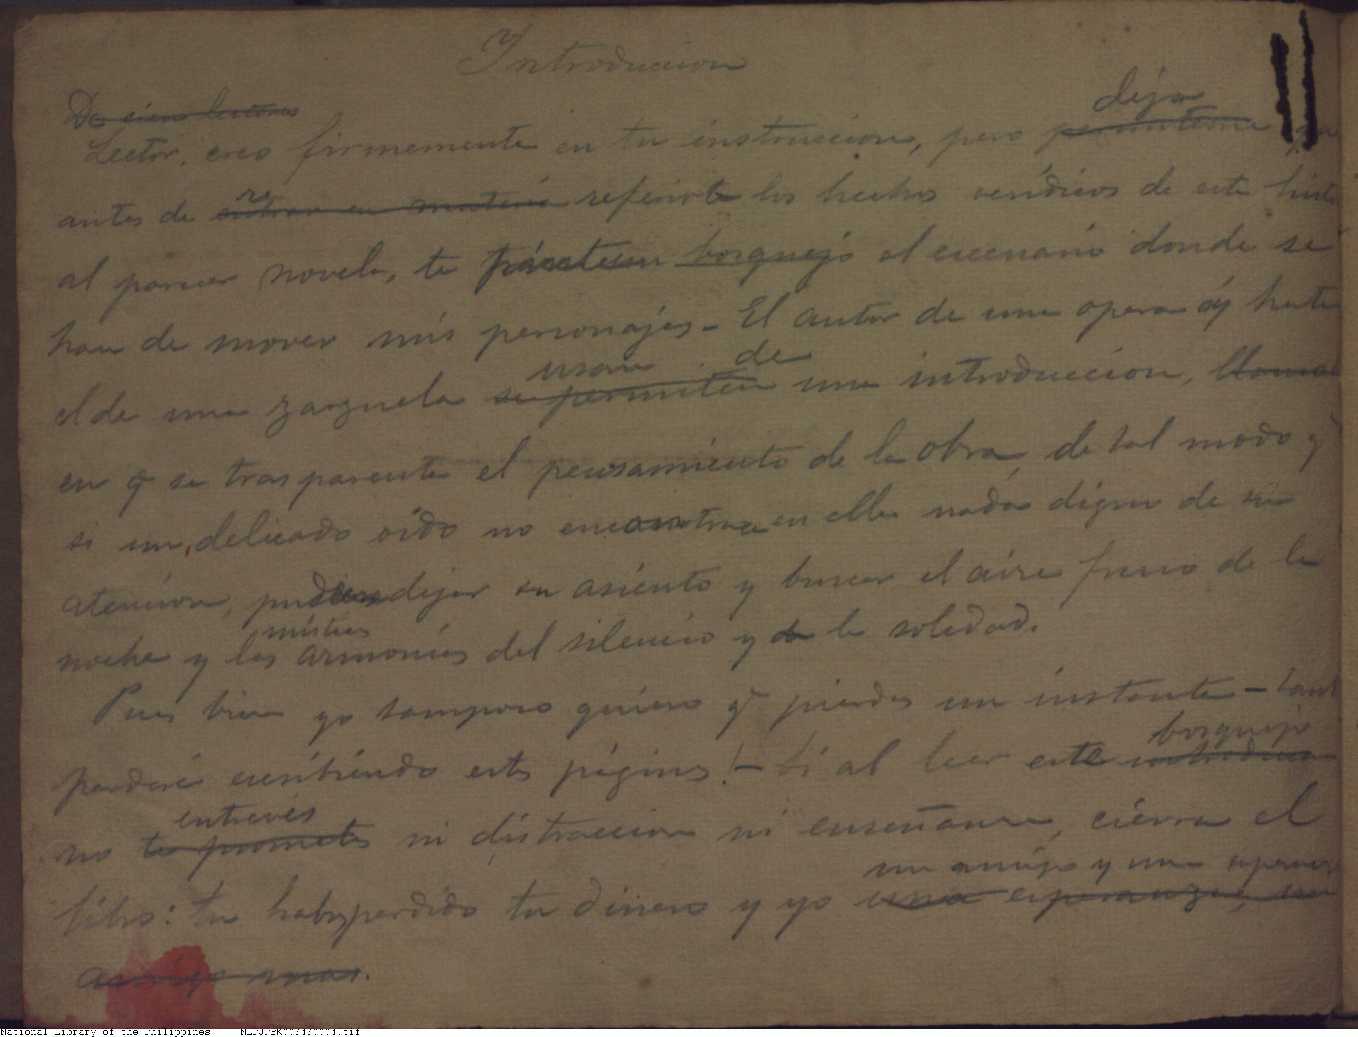 Introduccion
De cieno lectores
deja
Lector, creo firmemente en tu instruccion, pero permiteme
re
antes de entrar en materia referirte los hechos verídicos de esta
al parecer novela, te bosqueje el escenario donde se
han de mover mis personajes - El autor de una opera y hasta
usan de
el de una zarzuela se permiten una introduccion,
en q̃ se trasparente el pensamiento de la obra, de tal modo q̃
si un delicado oído no encontrase en ella nada digno de su
atencion, dejar su asiento y buscar el aire fresco de la
místicas
noche y las armonías del silencio y de la soledad.
Pues bien yo tampoco quiero q̃ pierdas un instante -
bosquejo
perderé escribiendo estas páginas! - Si al leer este
entrevés
no te promete ni distraccion ni enseñanza, cierra el
un amigo y una
libro: tu habrás perdido tu dinero y yo una esperanza, un
amigo mas.
National Library of the Philippines